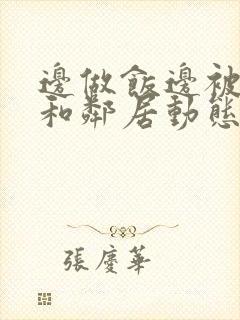 邊做飯邊被
和鄰居動態
張慶華